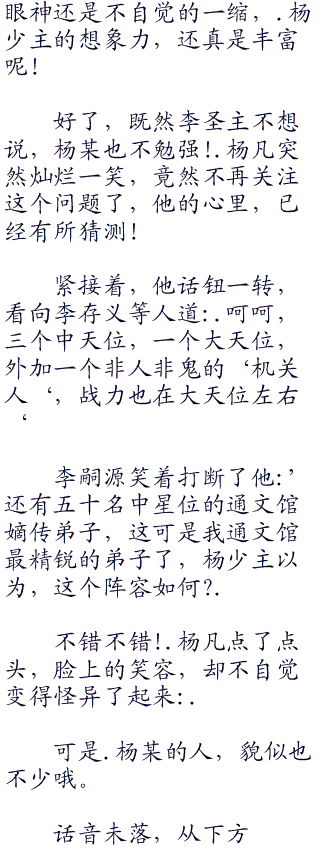 眼神还是不自觉的一缩，.杨
少主的想象力，还真是丰富
呢！
好了，既然李圣主不想
说，杨某也不勉强!.杨凡突
然灿烂一笑，竟然不再关注
这个问题了，他的心里，已
经有所猜测！
紧接着，他话钮一转，
看向李存义等人道:.呵呵，
三个中天位，一个大天位，
外加一个非人非鬼的‘机关
人‘，战力也在大天位左右
‘
李嗣源笑着打断了他:’
还有五十名中星位的通文馆
嫡传弟子，这可是我通文馆
最精锐的弟子了，杨少主以
为，这个阵容如何?.
不错不错!.杨凡点了点
头，脸上的笑容，却不自觉
变得怪异了起来:.
可是.杨某的人，貌似也
不少哦。
话音未落，从下方